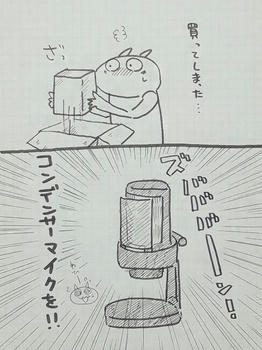 買ってしまった…
ざっ
ズババババーン!
コンデンサーマイクを!!